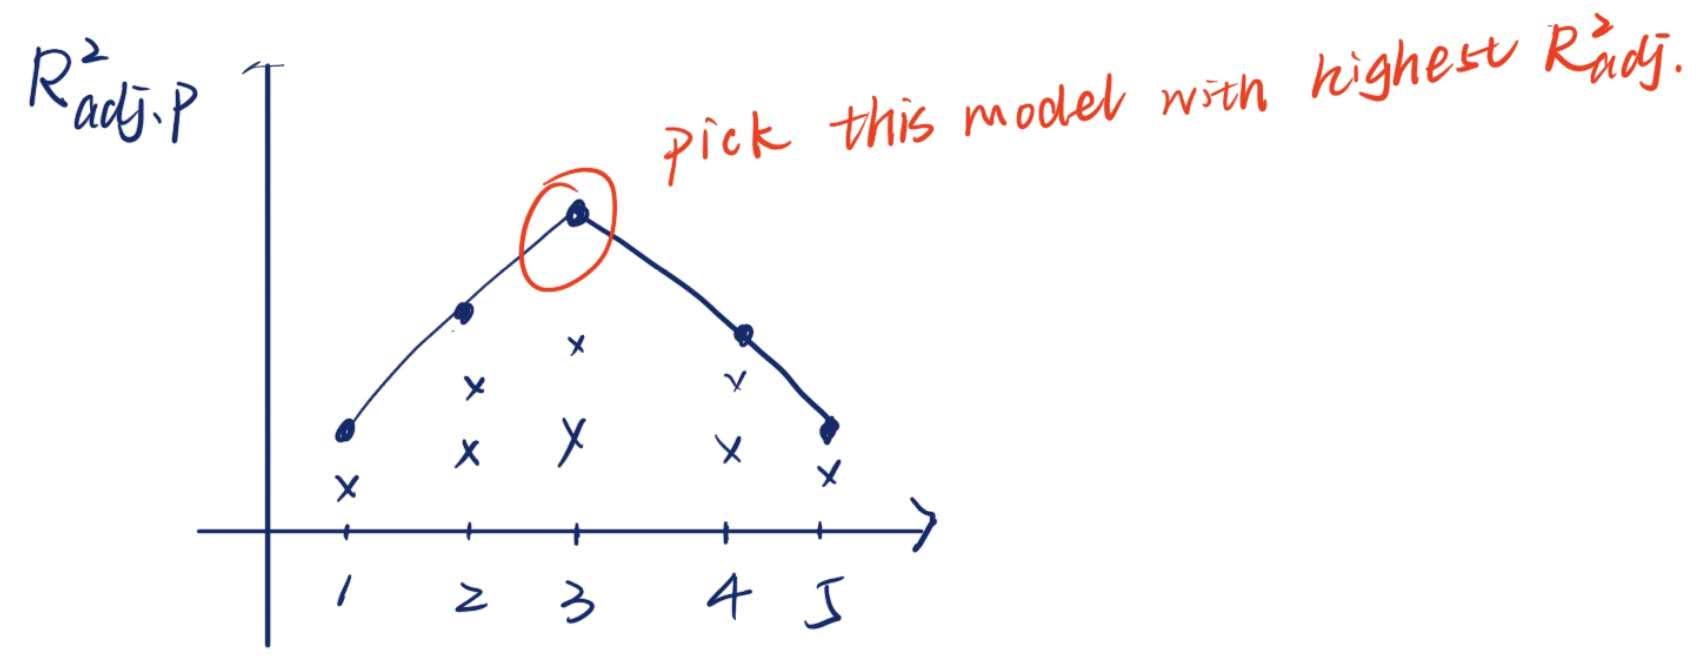 R²adj.p
pick this model with highest R²adj.
1 2 3 4 5